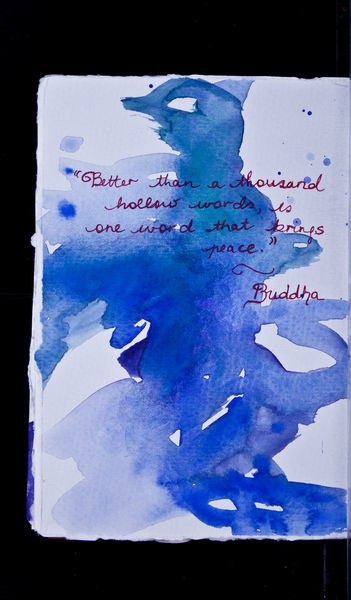 "Better than a thousand
hollow words, is
one word that brings
peace."
Buddha